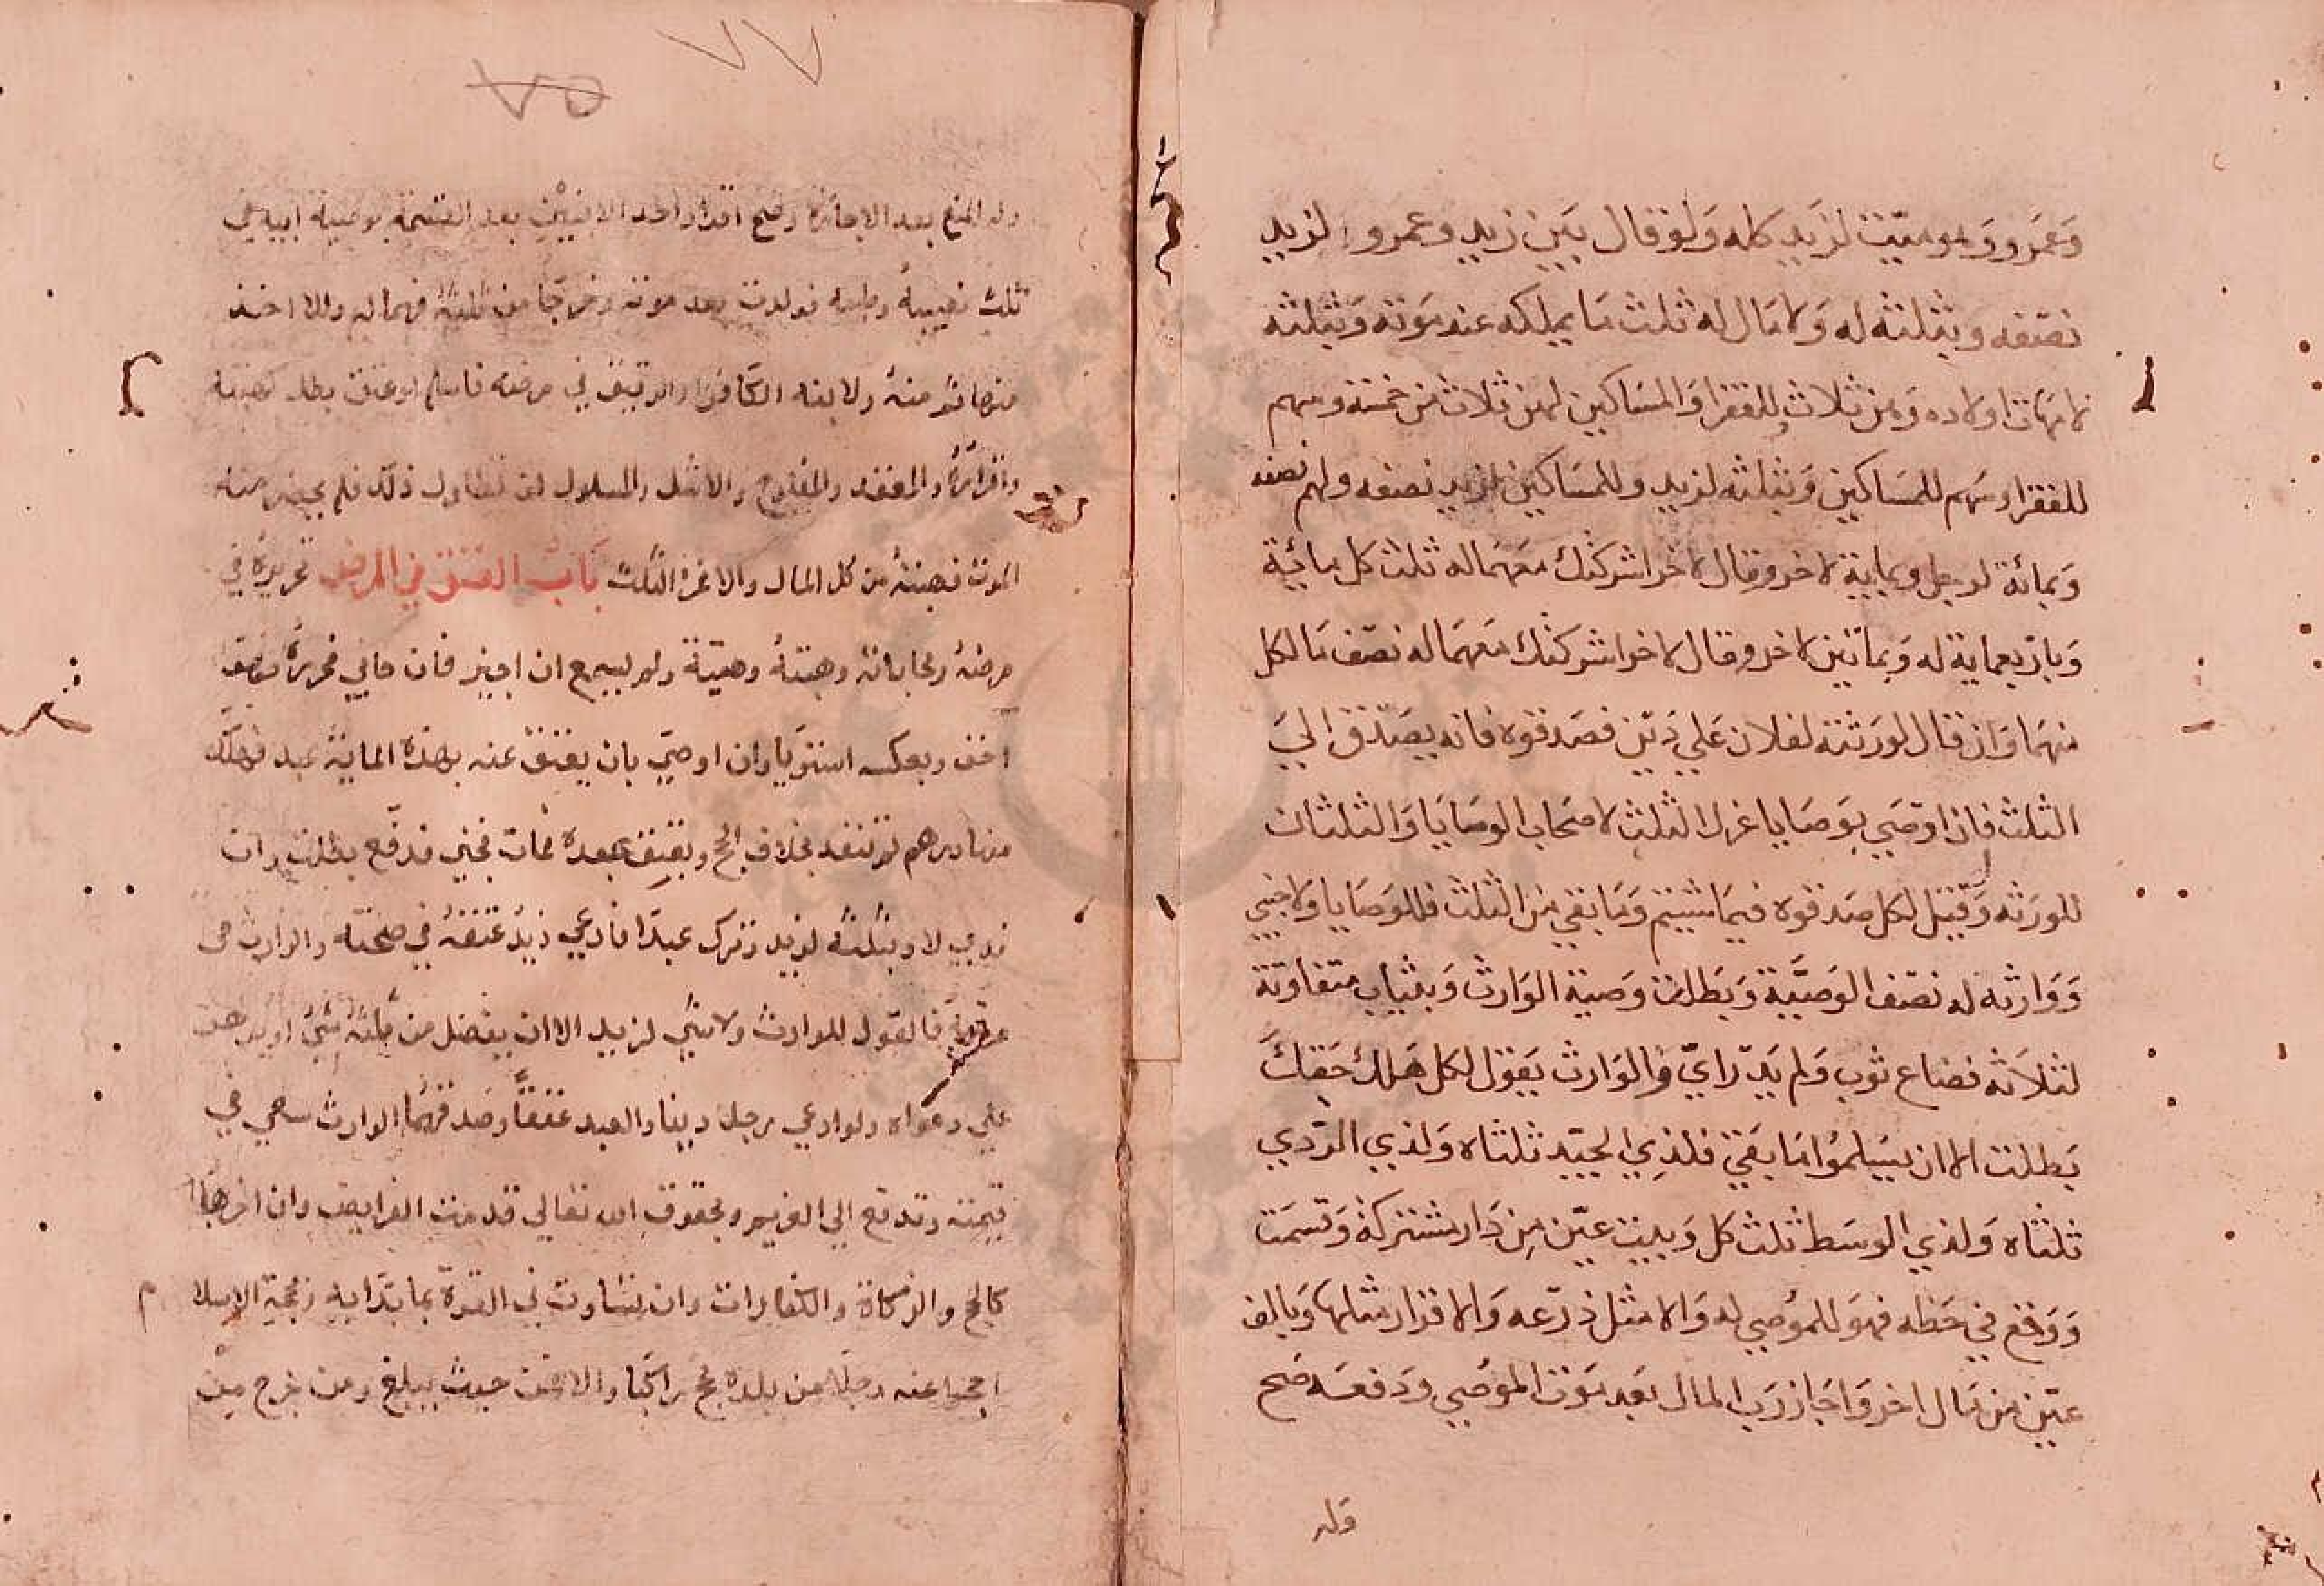 وَعَمرو وَهو ميّت لزَيدٍ كله وَلو قال بَين زيدٍ وعمرو لزيدٍ
نصفه وبثلثه له وَلا مَال له ثلث مَا يملكه عند مَوته وَبثلثه
لامهات اولاده وَهن ثلاث وللفقرا وَالمسَاكين لهن ثلاث من خمسَة وسهم
للفقرا وسَهم للمسَاكين وَبثلثه لزيدٍ وللمسَاكين لزيدٍ نصفه ولهم نصفه
وَبمائة لرجل وبماية لاخر وقال لاخر اشركتك مَعهمَا له ثلث كل مائية
وَباربعماية له وَبمائتين لاخر وقال لاخر اشركتك مَعهمَا له نصف مَا لكل
منهمَا وَان قال لورَثته لفلان عَلي دَين فصَدقوه فانه يصَدق الي
الثلث فان اوصَي بوَصَايا عزل الثلث لاصحَاب الوصَايَا وَالثلثان
للورَثه وَقيل لكل صَدقوه فيمَا شيتم وَمَا بقي من الثلث فللوصَايا ولاجنبي
وَوَارثه له نصف الوَصيَّة وَبَطلت وصَية الوَارث وَبثياب متفاوتة
لثلاَثه فضاع ثوب وَلم يَدر ايّ وَالوَارث يَقول لكل هَلك حَقكَ
بَطلت الا ان يسَلموُا مَا بقي فلذِي الجيّد ثلثاه وَلذي الرّدي
ثلثاه وَلذي الوسَط ثلث كل وَببيت عيّن مِن دَار مشتركة وَقسمَت
وَوَقع في حَظه فهوَ للموُصي له وَالا مثل ذرعه وَالاقرار مثلها وَبالف
عيّن من مَال اخر وَاجَاز رَب المال بَعد مَوت الموُصي وَدفعَه صَح
وله
٧٧
٧٥
وله المنع بعد الاجازة وصح اقرار احد الابنين بعد القسمة بوصية ابيه في
ثلث نصيبه وبامة فولدت بعد موته وخرجا من ثلثه فهما له والا اخذ
منها ثم منه ولابنه الكافر او الرقيق في مرضه فاسلم او عتق بطل كهبته
واقراره والمقعد والمفلوج والاشل والمسلول ان تطاول ذلك فلم يخف منه
الموت فهبته من كل المال والا فمن الثلث بَابُ العتق في المرض تحريره في
مرضه ومحاباته وهبته وصية ولم يسع ان اجيز فان حابي فحرره فهي
احق وبعكسه استويا وان اوصي بان يعتق عنه بهذه الماية عبد فهلك
منها درهم لم تنفد بخلاف الحج وبعتق عبده فمات فجني فدفع بطلت وان
فدي لا وبثلثه لزيد وترك عبدا فادعي زيد عتقه في صحته والوارث في
مرضه فالقول للوارث ولا شي لزيد الا ان يفضل من ثلثه شي او يبرهن
علي دعواه ولو ادعي رجل دينا والعبد عتقا وصدقهما الوارث سعي في
قيمته وتدفع الي الغريم وبحقوق الله تعالي قدمت الفرايض وان اخرها
كالحج والزكاة والكفارات وان تساوت في القوة بما بدا به وبحجة الاسلا م
احجوا عنه رجلا من بلده يحج راكبا والا فمن حيث يبلغ ومن خرج من